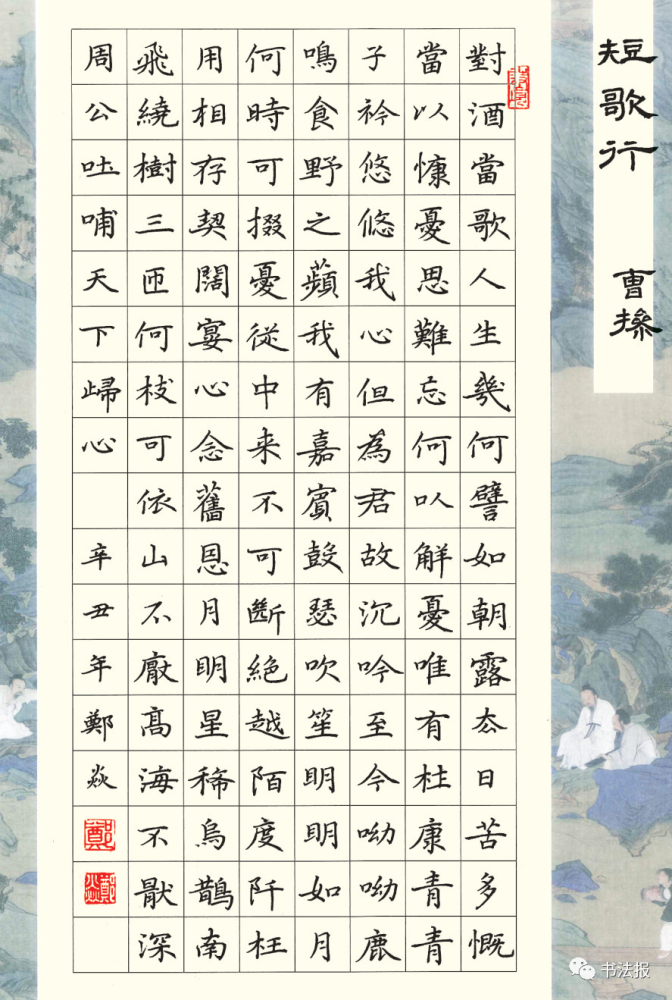 短歌行
曹操
對酒當歌人生幾何譬如朝露厺日苦多慨
當以慷憂思難忘何以解憂唯有杜康青青
子衿悠悠我心但為君故沉吟至今呦呦鹿
鳴食野之蘋我有嘉賓鼓瑟吹笙明明如月
何時可掇憂從中来不可斷絶越陌度阡枉
用相存契闊宴心念舊恩月明星稀烏鵲南
飛繞樹三匝何枝可依山不厭高海不厭深
周公吐哺天下歸心
辛丑年鄭焱
鄭
鄭焱
书法报